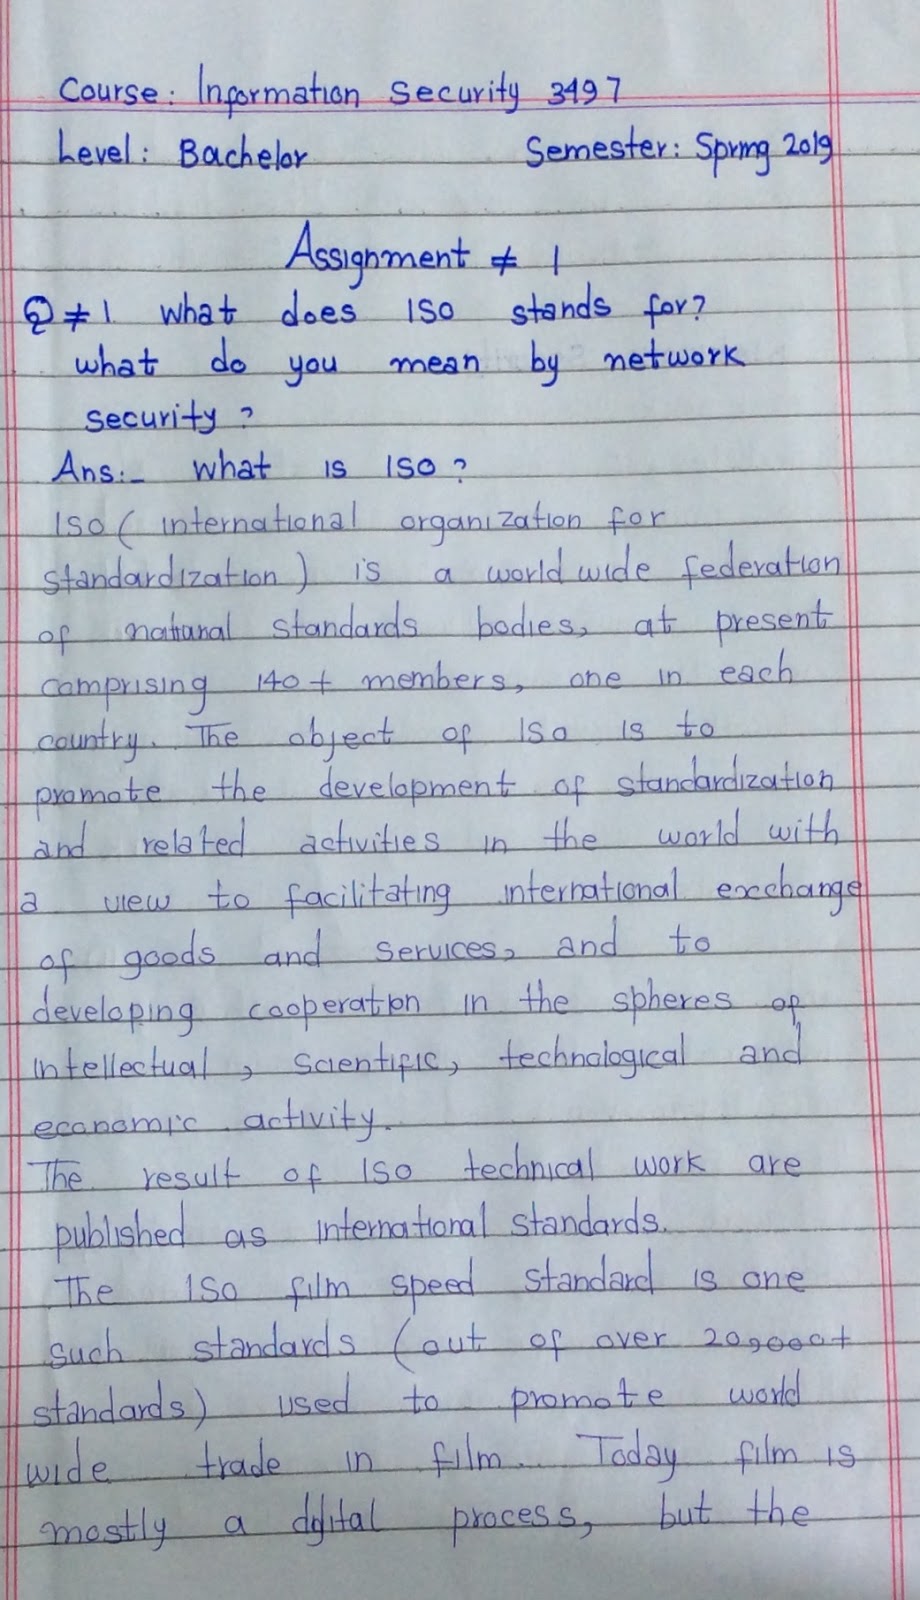 Course: Information Security 3497
Level: Bachelor Semester: Spring 2019
Assignment ≠ 1
Q ≠ 1 what does ISO stands for?
what do you mean by network
security?
Ans:- what is ISO?
ISO ( international organization for
standardization ) is a world wide federation
of national standards bodies, at present
comprising 140+ members, one in each
country. The object of ISO is to
promote the development of standardization
and related activities in the world with
a view to facilitating international exchange
of goods and services, and to
developing cooperation in the spheres of
intellectual, scientific, technological and
economic activity.
The result of ISO technical work are
published as international standards.
The ISO film speed standard is one
such standards (out of over 20,000+
standards) used to promote world
wide trade in film. Today film is
mostly a dgital process, but the